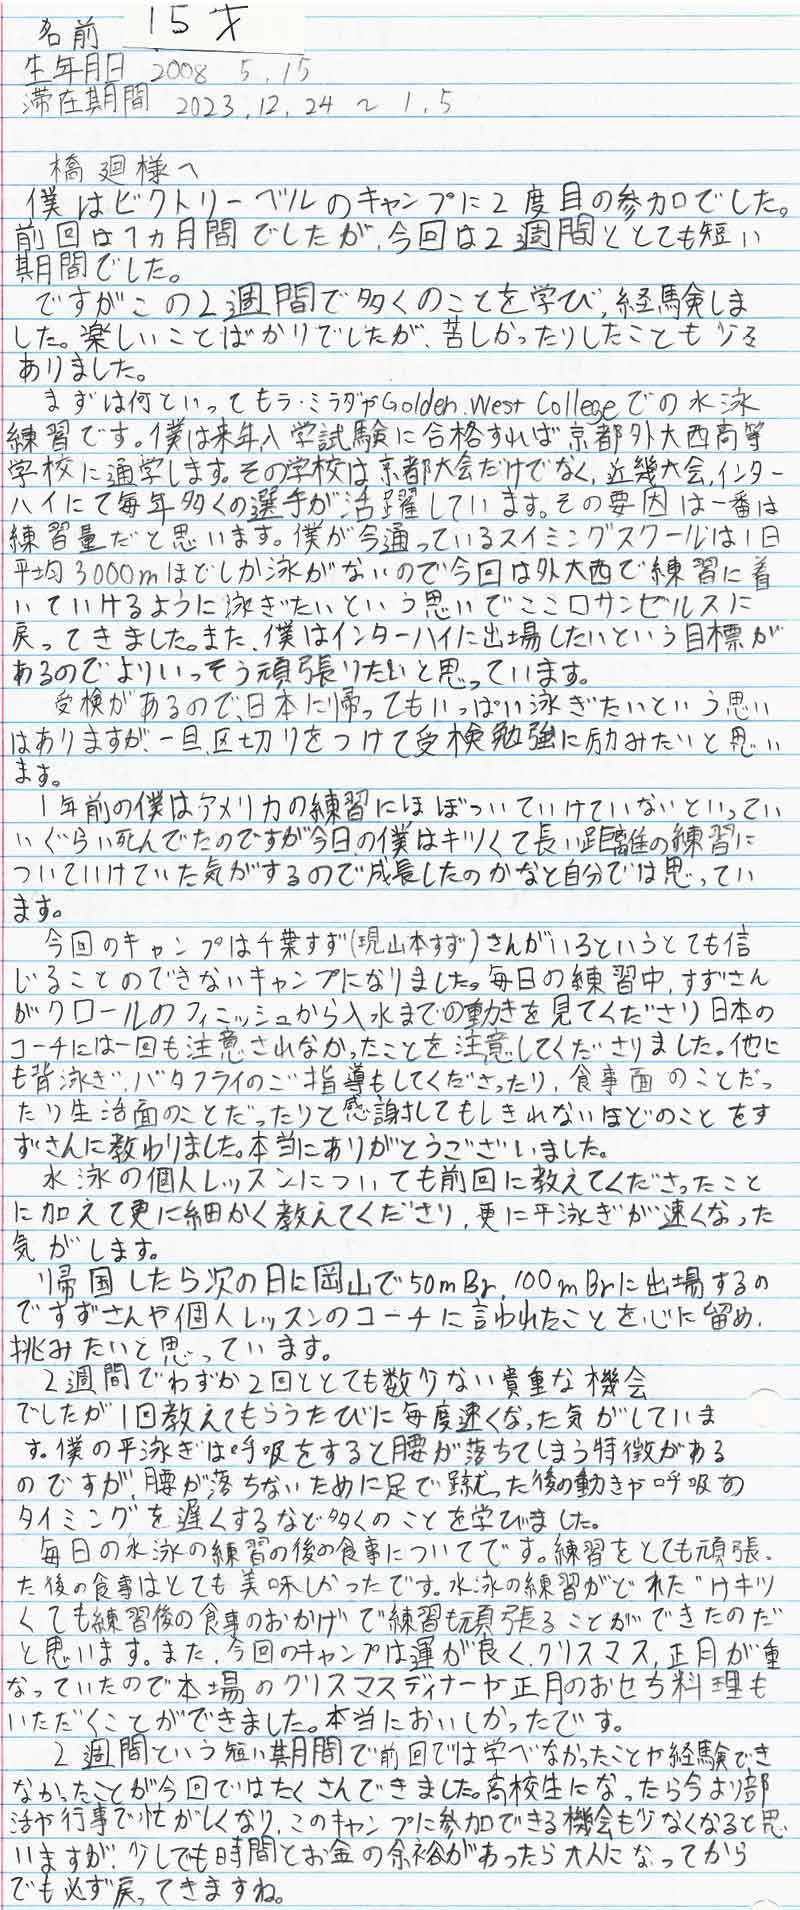 名前 15才
生年月日 2008 5.15
滞在期間 2023.12.24 〜 1.5
橋廻様へ
僕はビクトリーベルのキャンプに2度目の参加でした。
前回は1ヵ月間でしたが、今回は2週間ととても短い
期間でした。
ですがこの2週間で多くのことを学び、経験しま
した。楽しいことばかりでしたが、苦しかったりしたことも少々
ありました。
まずは何といってもラ・ミラダやGolden.West Collegeでの水泳
練習です。僕は来年入学試験に合格すれば京都外大西高等
学校に通学します。その学校は京都大会だけでなく、近畿大会、インター
ハイにて毎年多くの選手が活躍しています。その要因は一番は
練習量だと思います。僕が今通っているスイミングスクールは1日
平均3000mほどしか泳がないので今回は外大西で練習に着
いていけるように泳ぎたいという思いでここロサンゼルスに
戻ってきました。また、僕はインターハイに出場したいという目標が
あるのでよりいっそう頑張りたいと思っています。
受検があるので、日本に帰ってもいっぱい泳ぎたいという思い
はありますが、一旦、区切りをつけて受検勉強に励みたいと思い
ます。
1年前の僕はアメリカの練習にほぼついていけていないといってい
いぐらい死んでたのですが今日の僕はキツくて長い距離の練習に
ついていけていた気がするので成長したのかなと自分では思ってい
ます。
今回のキャンプは千葉すず(現山本すず)さんがいるというとても信
じることのできないキャンプになりました。毎日の練習中、すずさん
がクロールのフィニッシュから入水までの動きを見てくださり日本の
コーチには一回も注意されなかったことを注意してくださりました。他に
も背泳ぎ、バタフライのご指導もしてくださったり、食事面のことだっ
たり生活面のことだったりと感謝してもしきれないほどのことをす
ずさんに教わりました。本当にありがとうございました。
水泳の個人レッスンについても前回に教えてくださったこと
に加えて更に細かく教えてくださり、更に平泳ぎが速くなった
気がします。
帰国したら次の日に岡山で50mBr、100mBrに出場するの
ですずさんや個人レッスンのコーチに言われたことを心に留め、
挑みたいと思っています。
2週間でわずか2回ととても数少ない貴重な機会
でしたが1回教えてもらうたびに毎度速くなった気がしていま
す。僕の平泳ぎは呼吸をすると腰が落ちてしまう特徴がある
のですが、腰が落ちないために足で蹴った後の動きや呼吸の
タイミングを遅くするなど多くのことを学びました。
毎日の水泳の練習の後の食事についてです。練習をとても頑張っ
た後の食事はとても美味しかったです。水泳の練習がどれだけキツ
くても練習後の食事のおかげで練習も頑張ることができたのだ
と思います。また、今回のキャンプは運が良く、クリスマス、正月が重
なっていたので本場のクリスマスディナーや正月のおせち料理も
いただくことができました。本当においしかったです。
2週間という短い期間で前回では学べなかったことや経験でき
なかったことが今回ではたくさんできました。高校生になったら今より部
活や行事で忙がしくなり、このキャンプに参加できる機会も少なくなると思
いますが、少しでも時間とお金の余裕があったら大人になってから
でも必ず戻ってきますね。